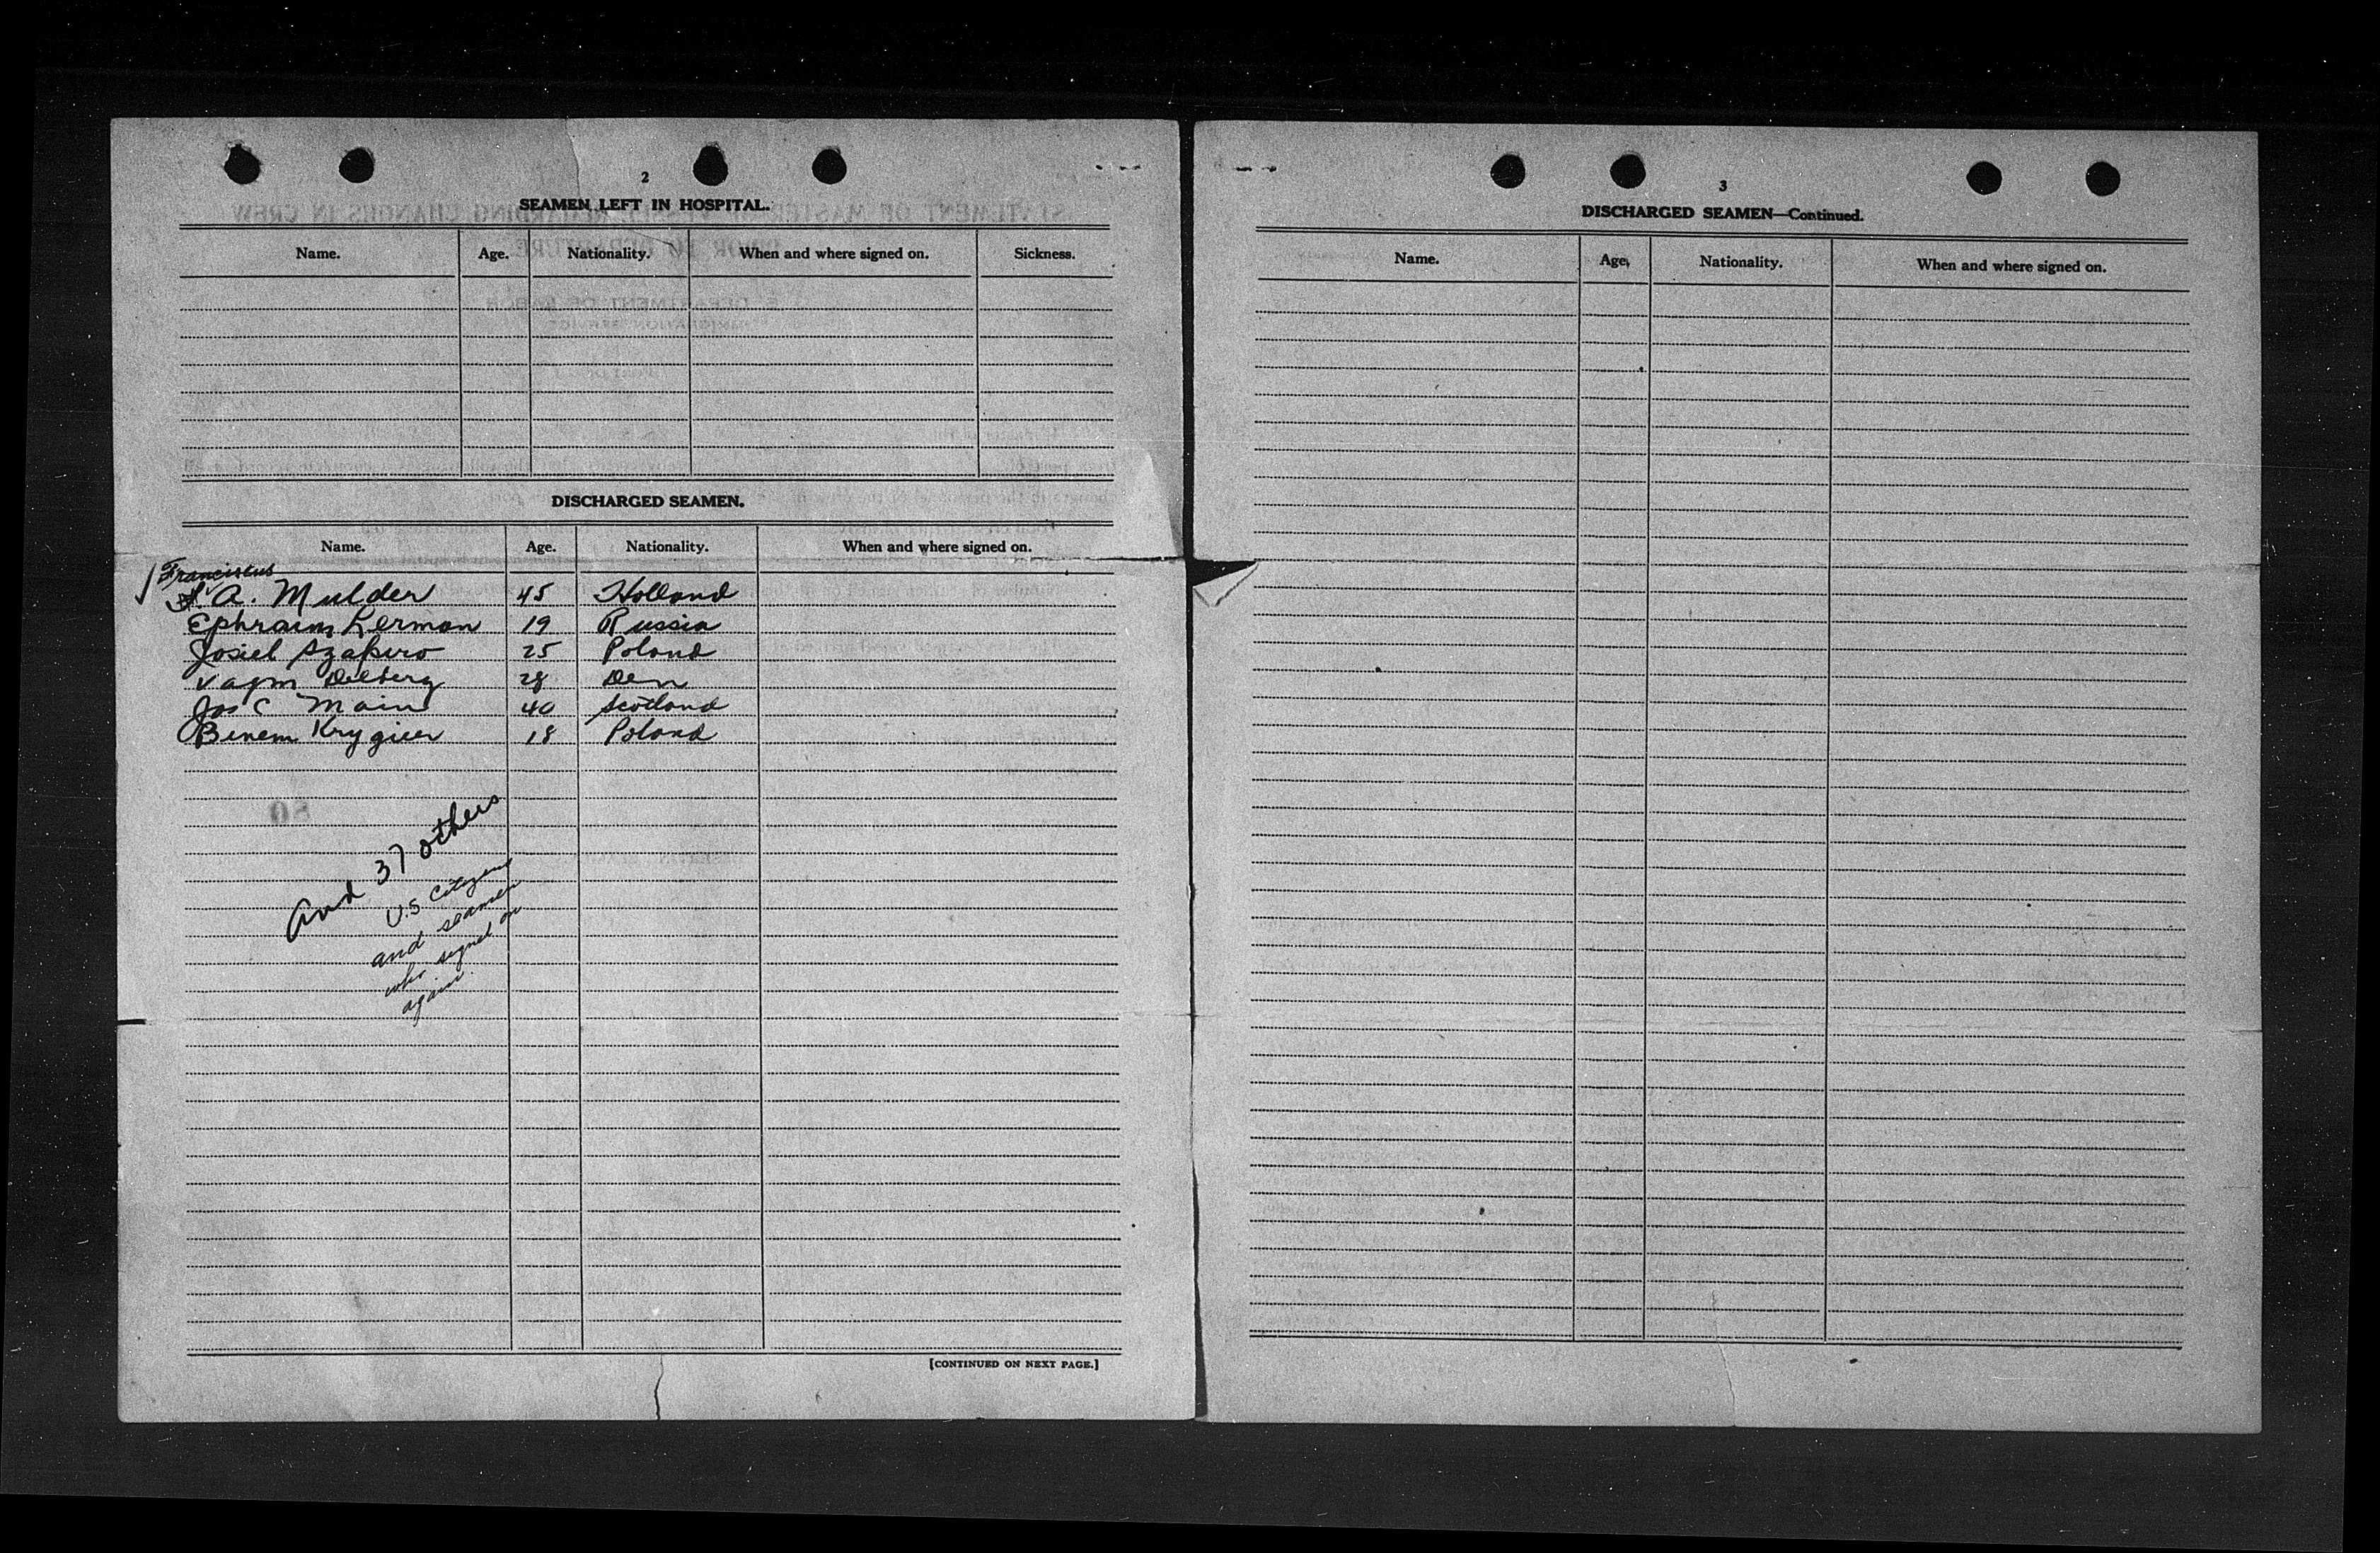 2
SEAMEN LEFT IN HOSPITAL.
Name. Age. Nationality. When and where signed on. Sickness.
DISCHARGED SEAMEN.
Name. Age. Nationality. When and where signed on.
Franciskus
A. Mulder 45 Holland
Ephraim Lerman 19 Russia
Josiel Szapiro 25 Poland
Delberg 28 Den
Jas C Main 40 Scotland
Binem Krygier 18 Poland
And 37 others
U.S Citizens
and seamen
who signed on
again.
[CONTINUED ON NEXT PAGE.]
3
DISCHARGED SEAMEN—Continued.
Name. Age. Nationality. When and where signed on.